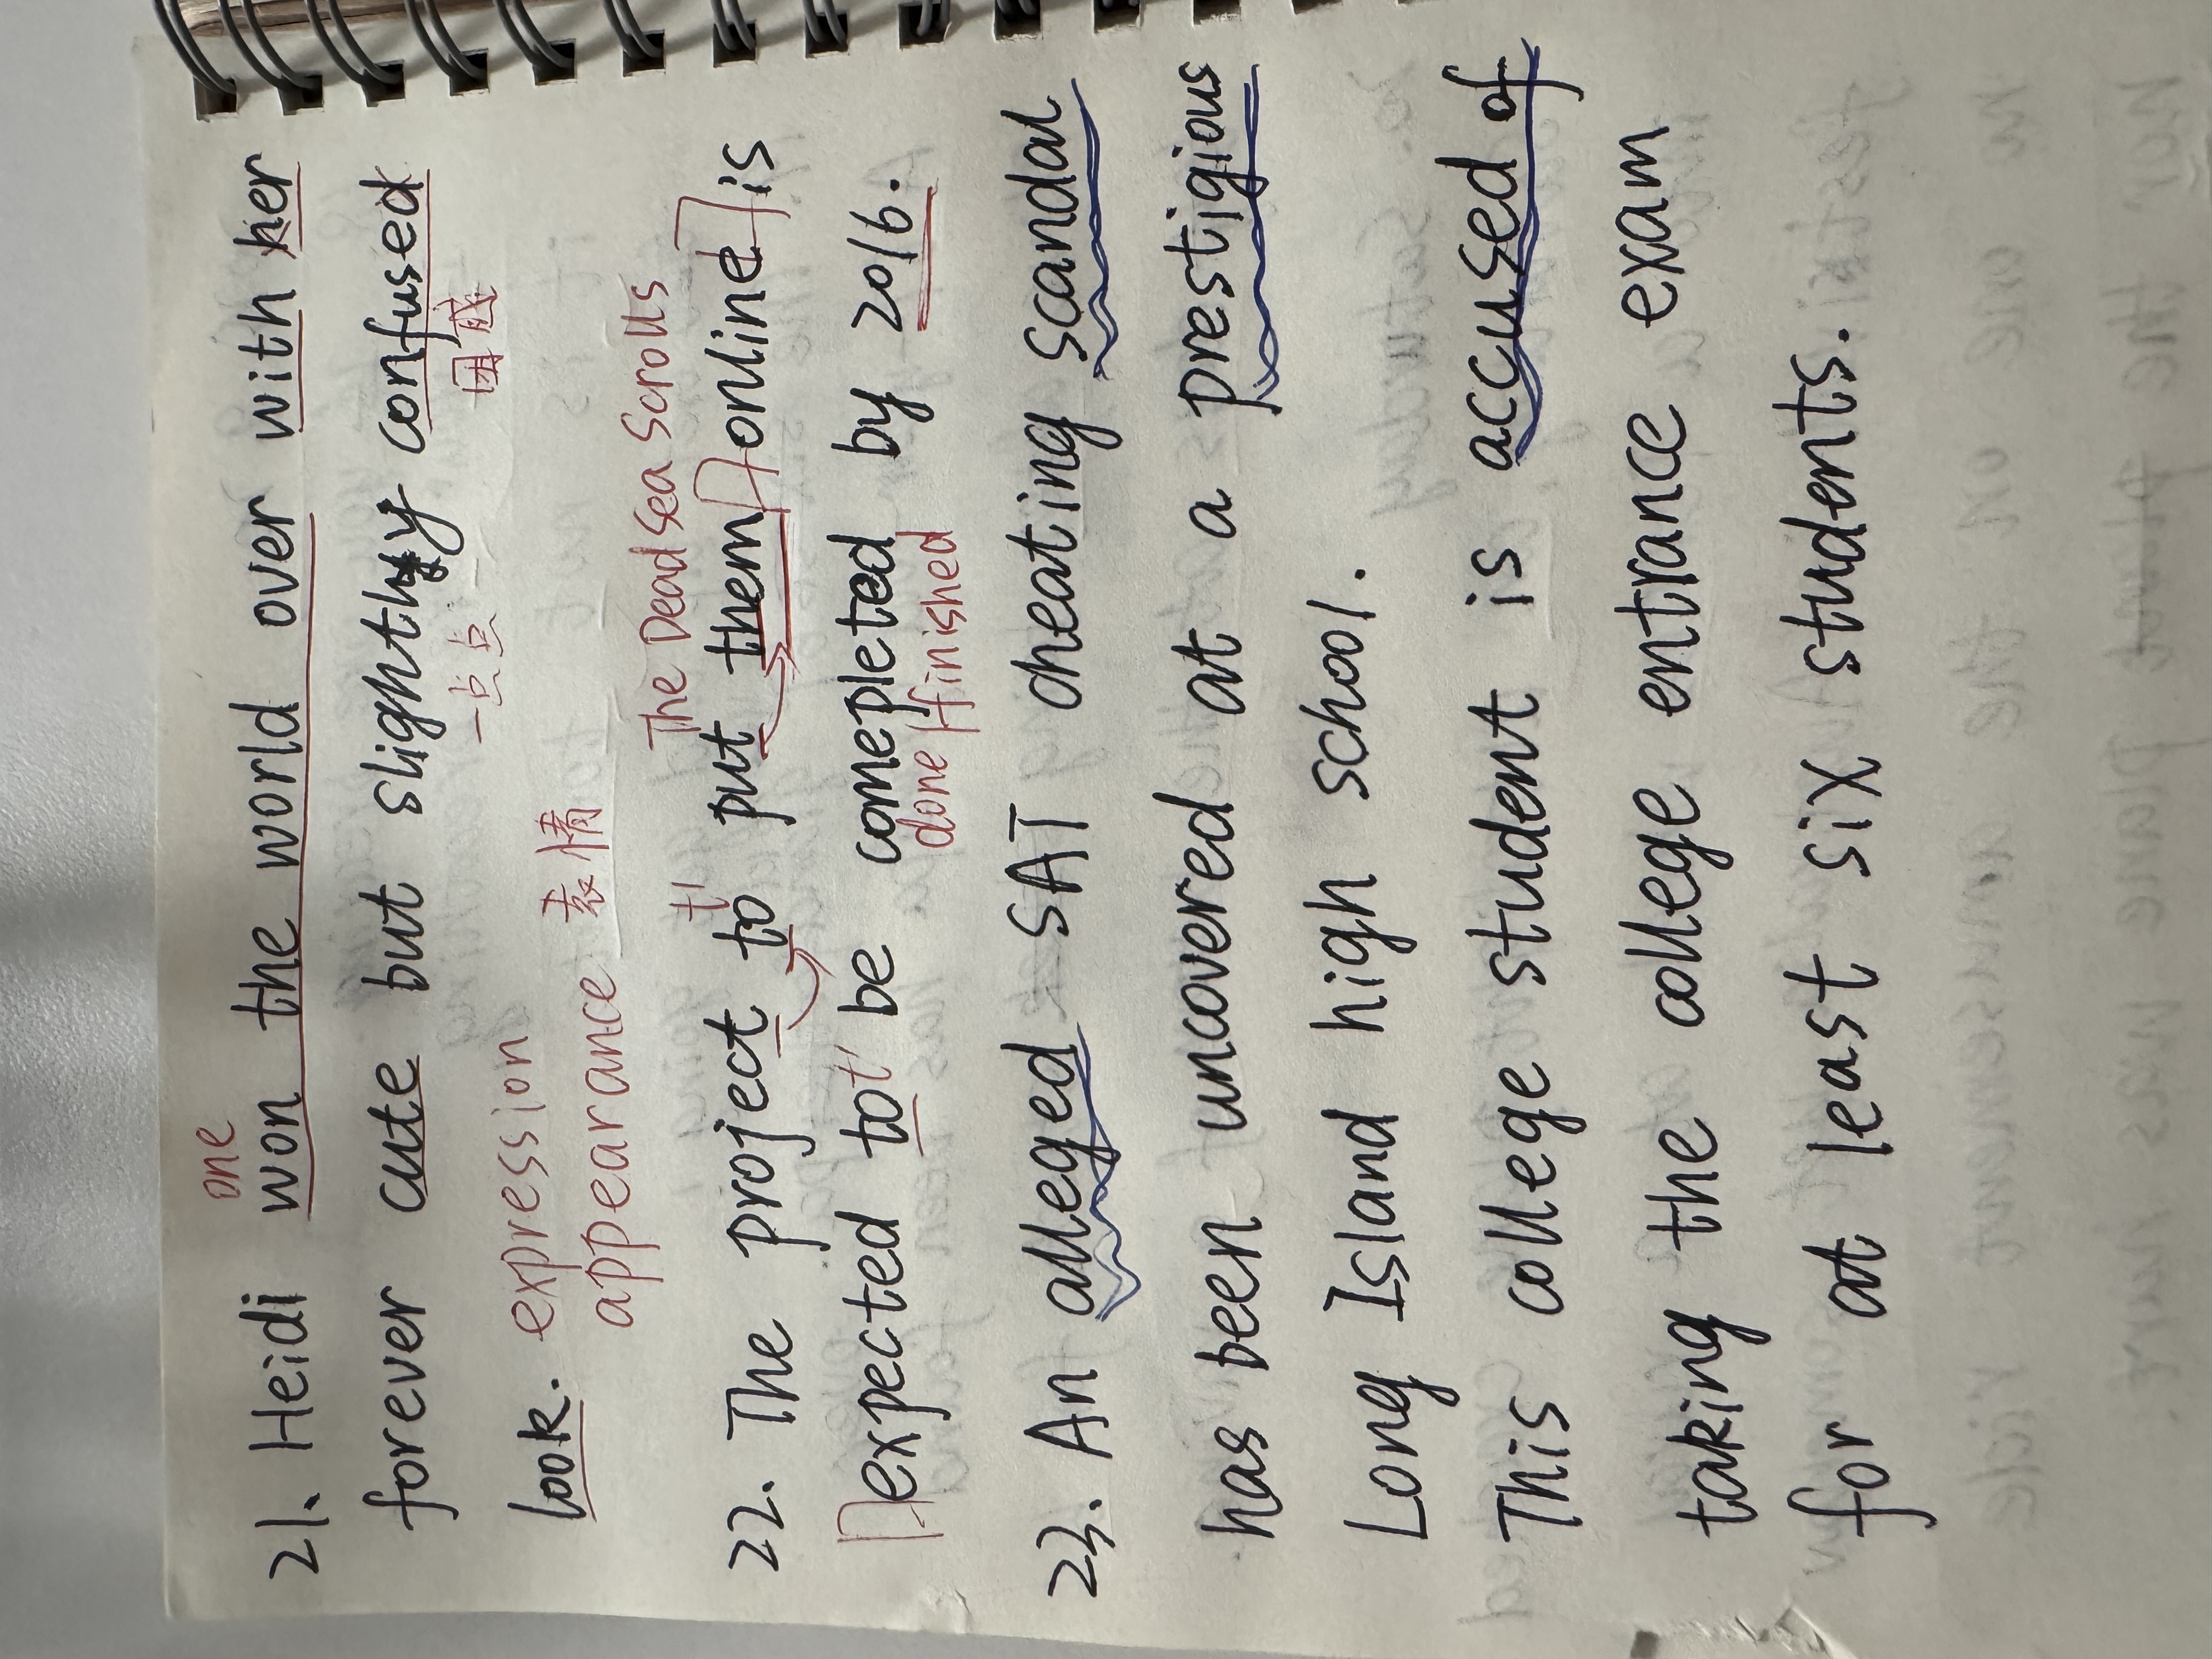 one
21. Heidi won the world over with her
forever cute but slighthyy confused
一点点 困惑
look. expression
appearance 表情
The Dead Sea Scrolls
t'
22. The project to put them online is
expected to t' be comepleted by 2016.
done/finished
23. An alleged SAT cheating scandal
has been uncovered at a prestigious
Long Island high school.
This college student is accused of
taking the college entrance exam
for at least six students.